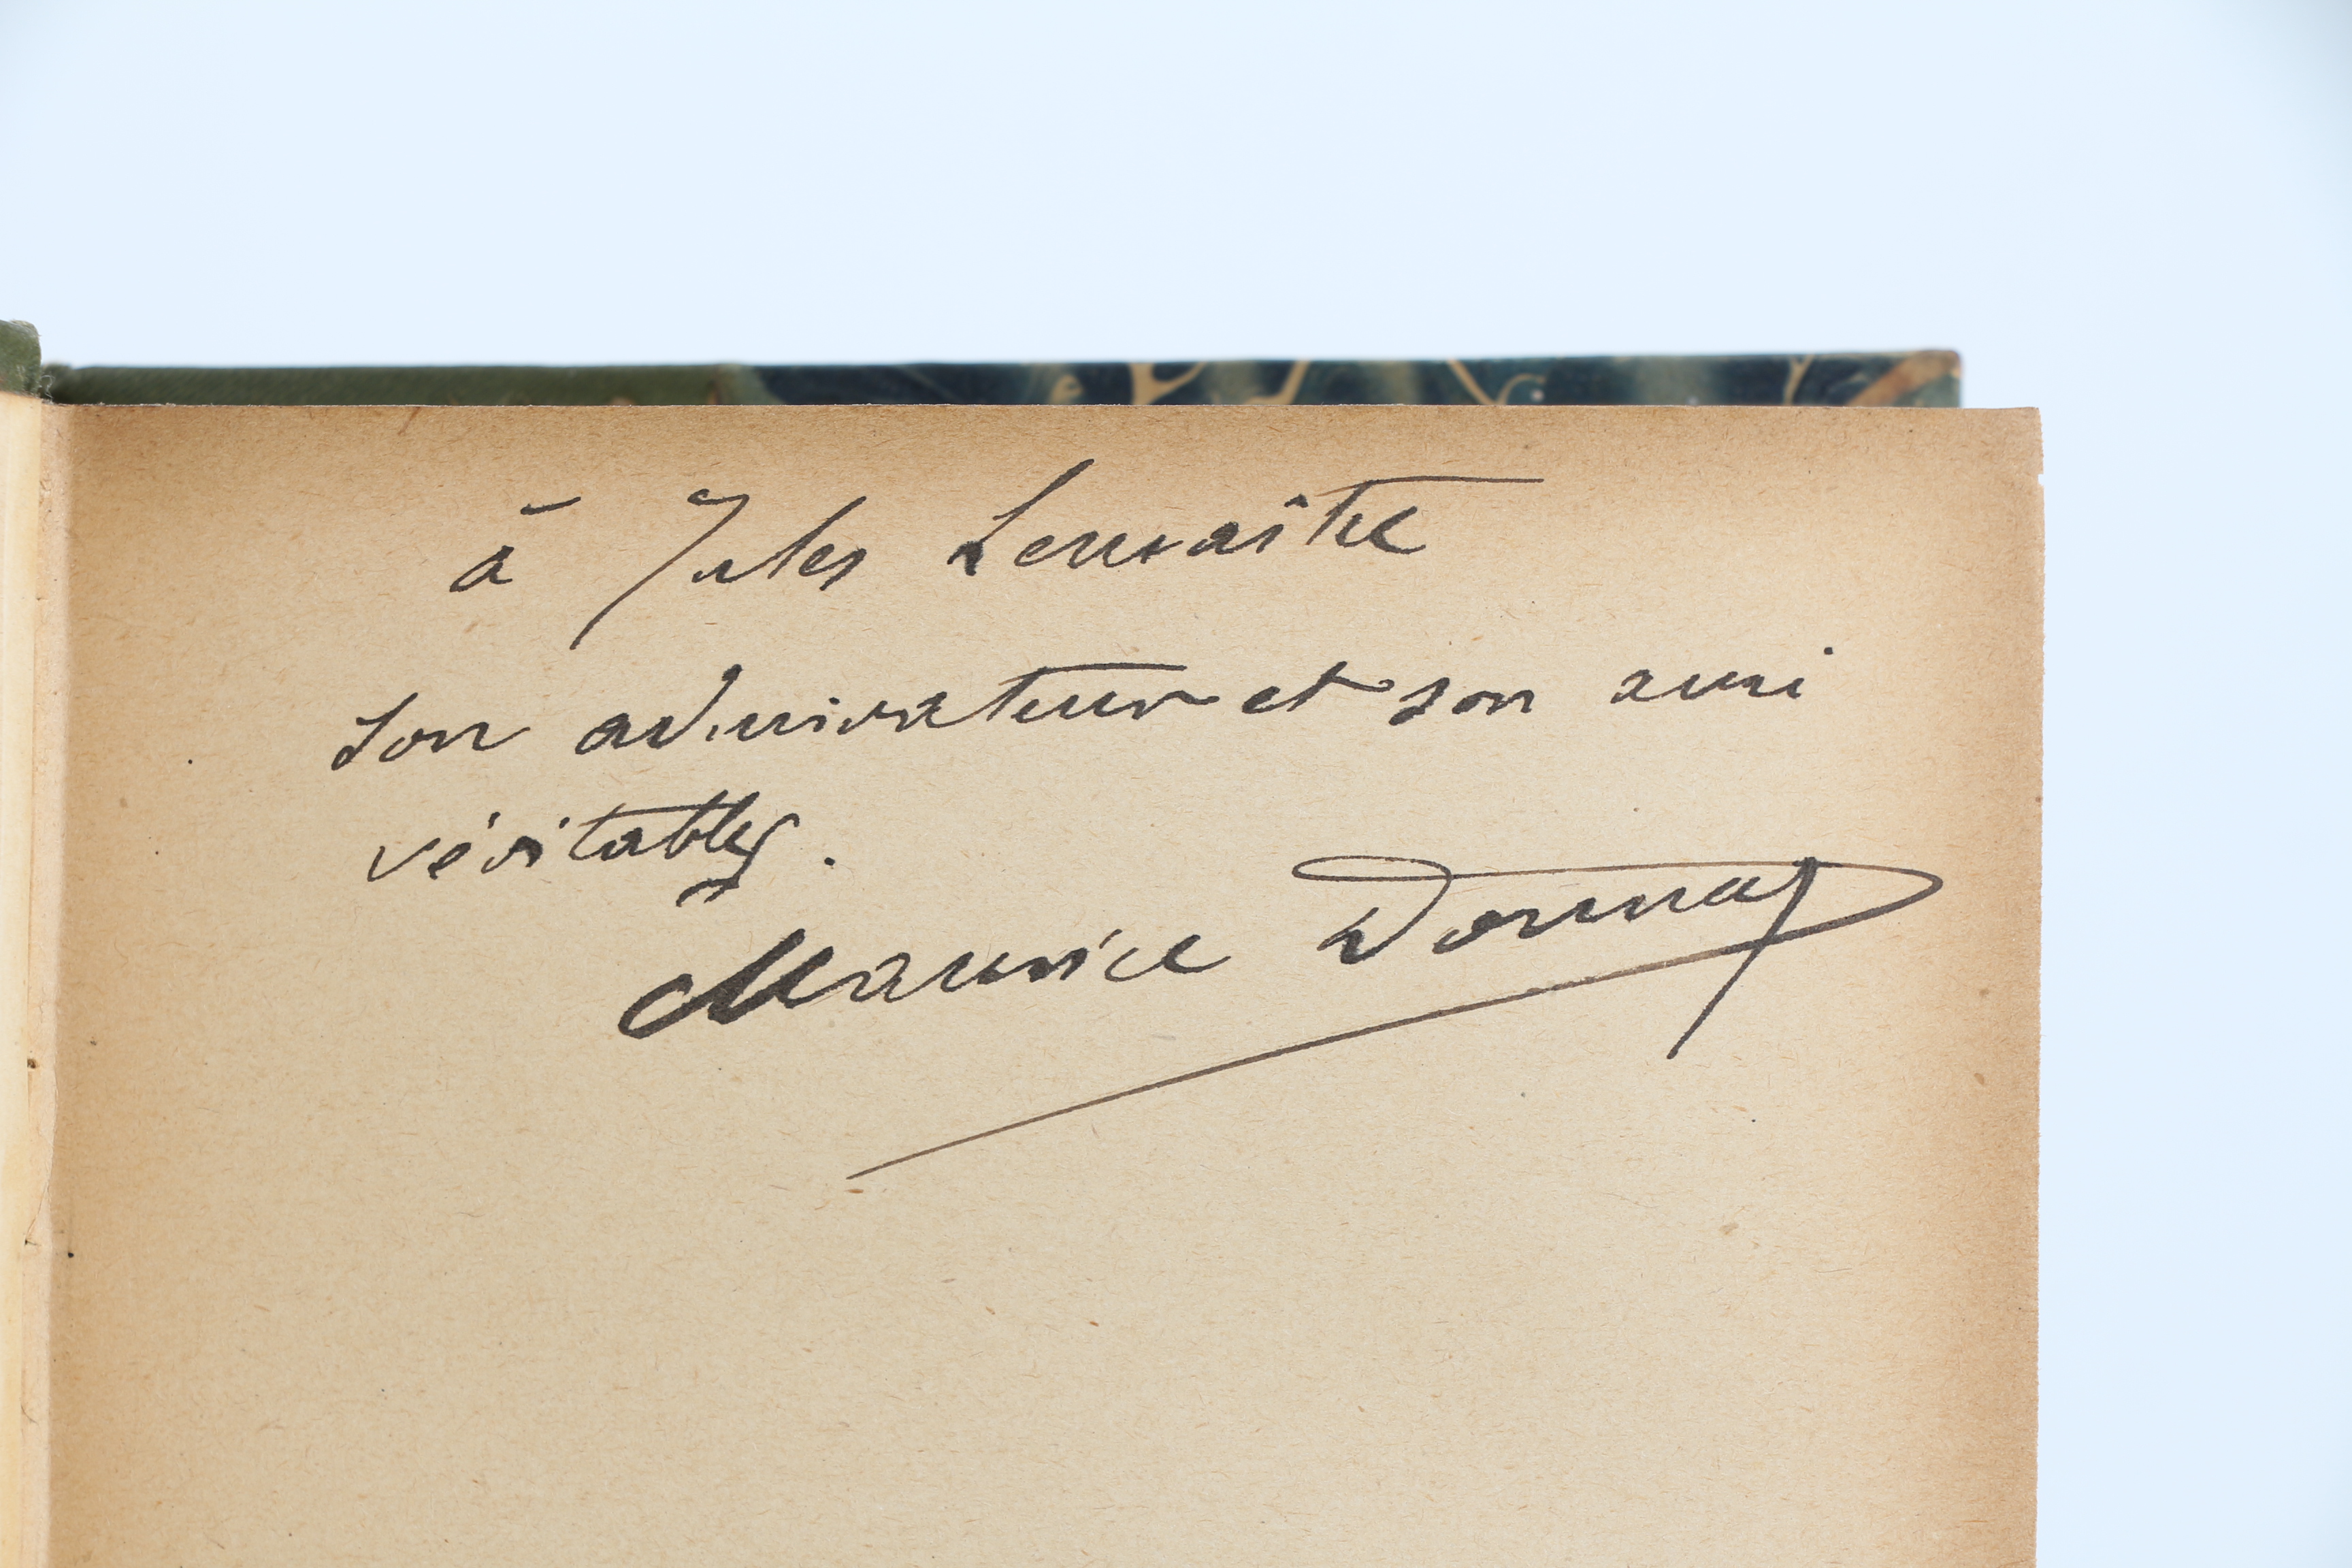 à Jules Lemaître
son admirateur et son ami
véritables.
Maurice Donnay